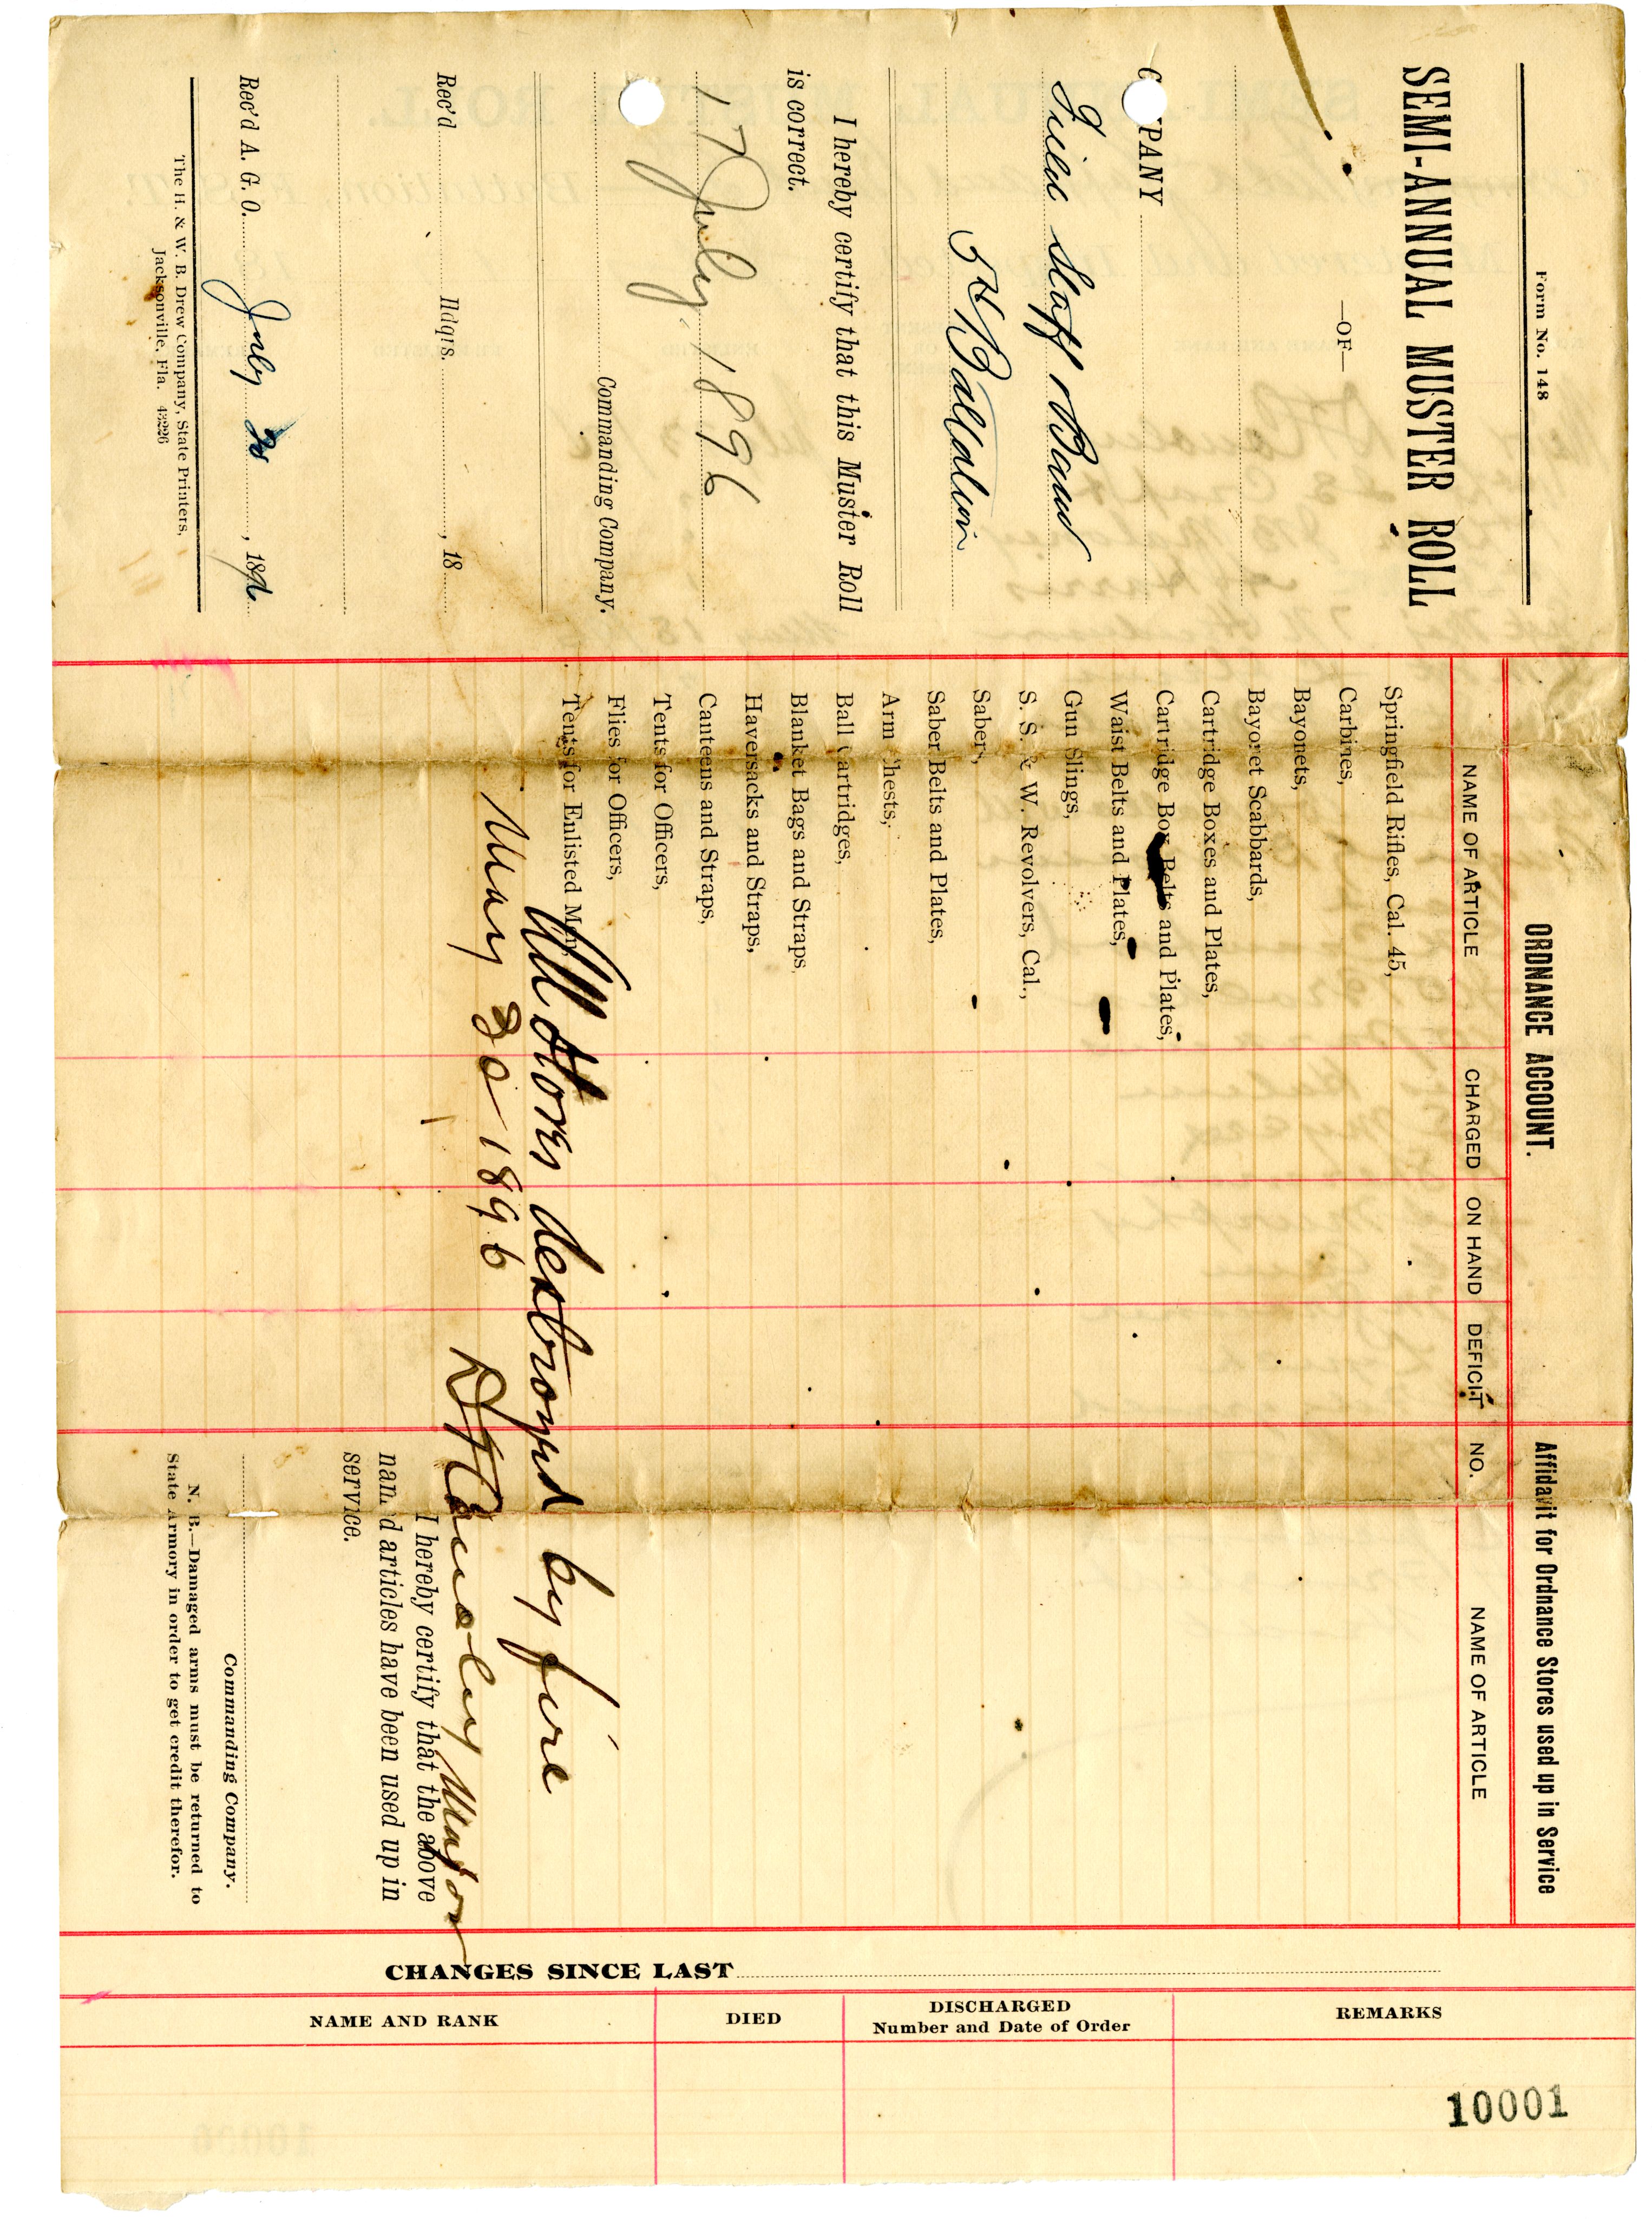 Form No. 148
SEMI-ANNUAL MUSTER ROLL
—OF—
C PANY
Field Staff & Band
5th Battalion
I hereby certify that this Muster Roll
is correct.
17 July, 1896
Commanding Company.
Rec'd Hdqrs. , 18
Rec'd A. G. O. July 20, 1896
The H. & W. B. Drew Company, State Printers,
Jacksonville, Fla. 42226
ORDNANCE ACCOUNT.
NAME OF ARTICLE CHARGED ON HAND DEFICIT
Springfield Rifles, Cal. 45,
Carbines,
Bayonets,
Bayonet Scabbards,
Cartridge Boxes and Plates,
Cartridge Box Belts and Plates,
Waist Belts and Plates,
Gun Slings,
S. S. & W. Revolvers, Cal.,
Sabers,
Saber Belts and Plates,
Arm Chests,
Ball Cartridges,
Blanket Bags and Straps,
Haversacks and Straps,
Canteens and Straps,
Tents for Officers,
Flies for Officers,
Tents for Enlisted Men,
All Stores destroyed by fire
May 30 1896
Major
Affidavit for Ordnance Stores used up in Service
NO. NAME OF ARTICLE
I hereby certify that the above
named articles have been used up in
service.
Commanding Company.
N. B.—Damaged arms must be returned to
State Armory in order to get credit therefor.
CHANGES SINCE LAST
NAME AND RANK DIED DISCHARGED REMARKS
Number and Date of Order
10001